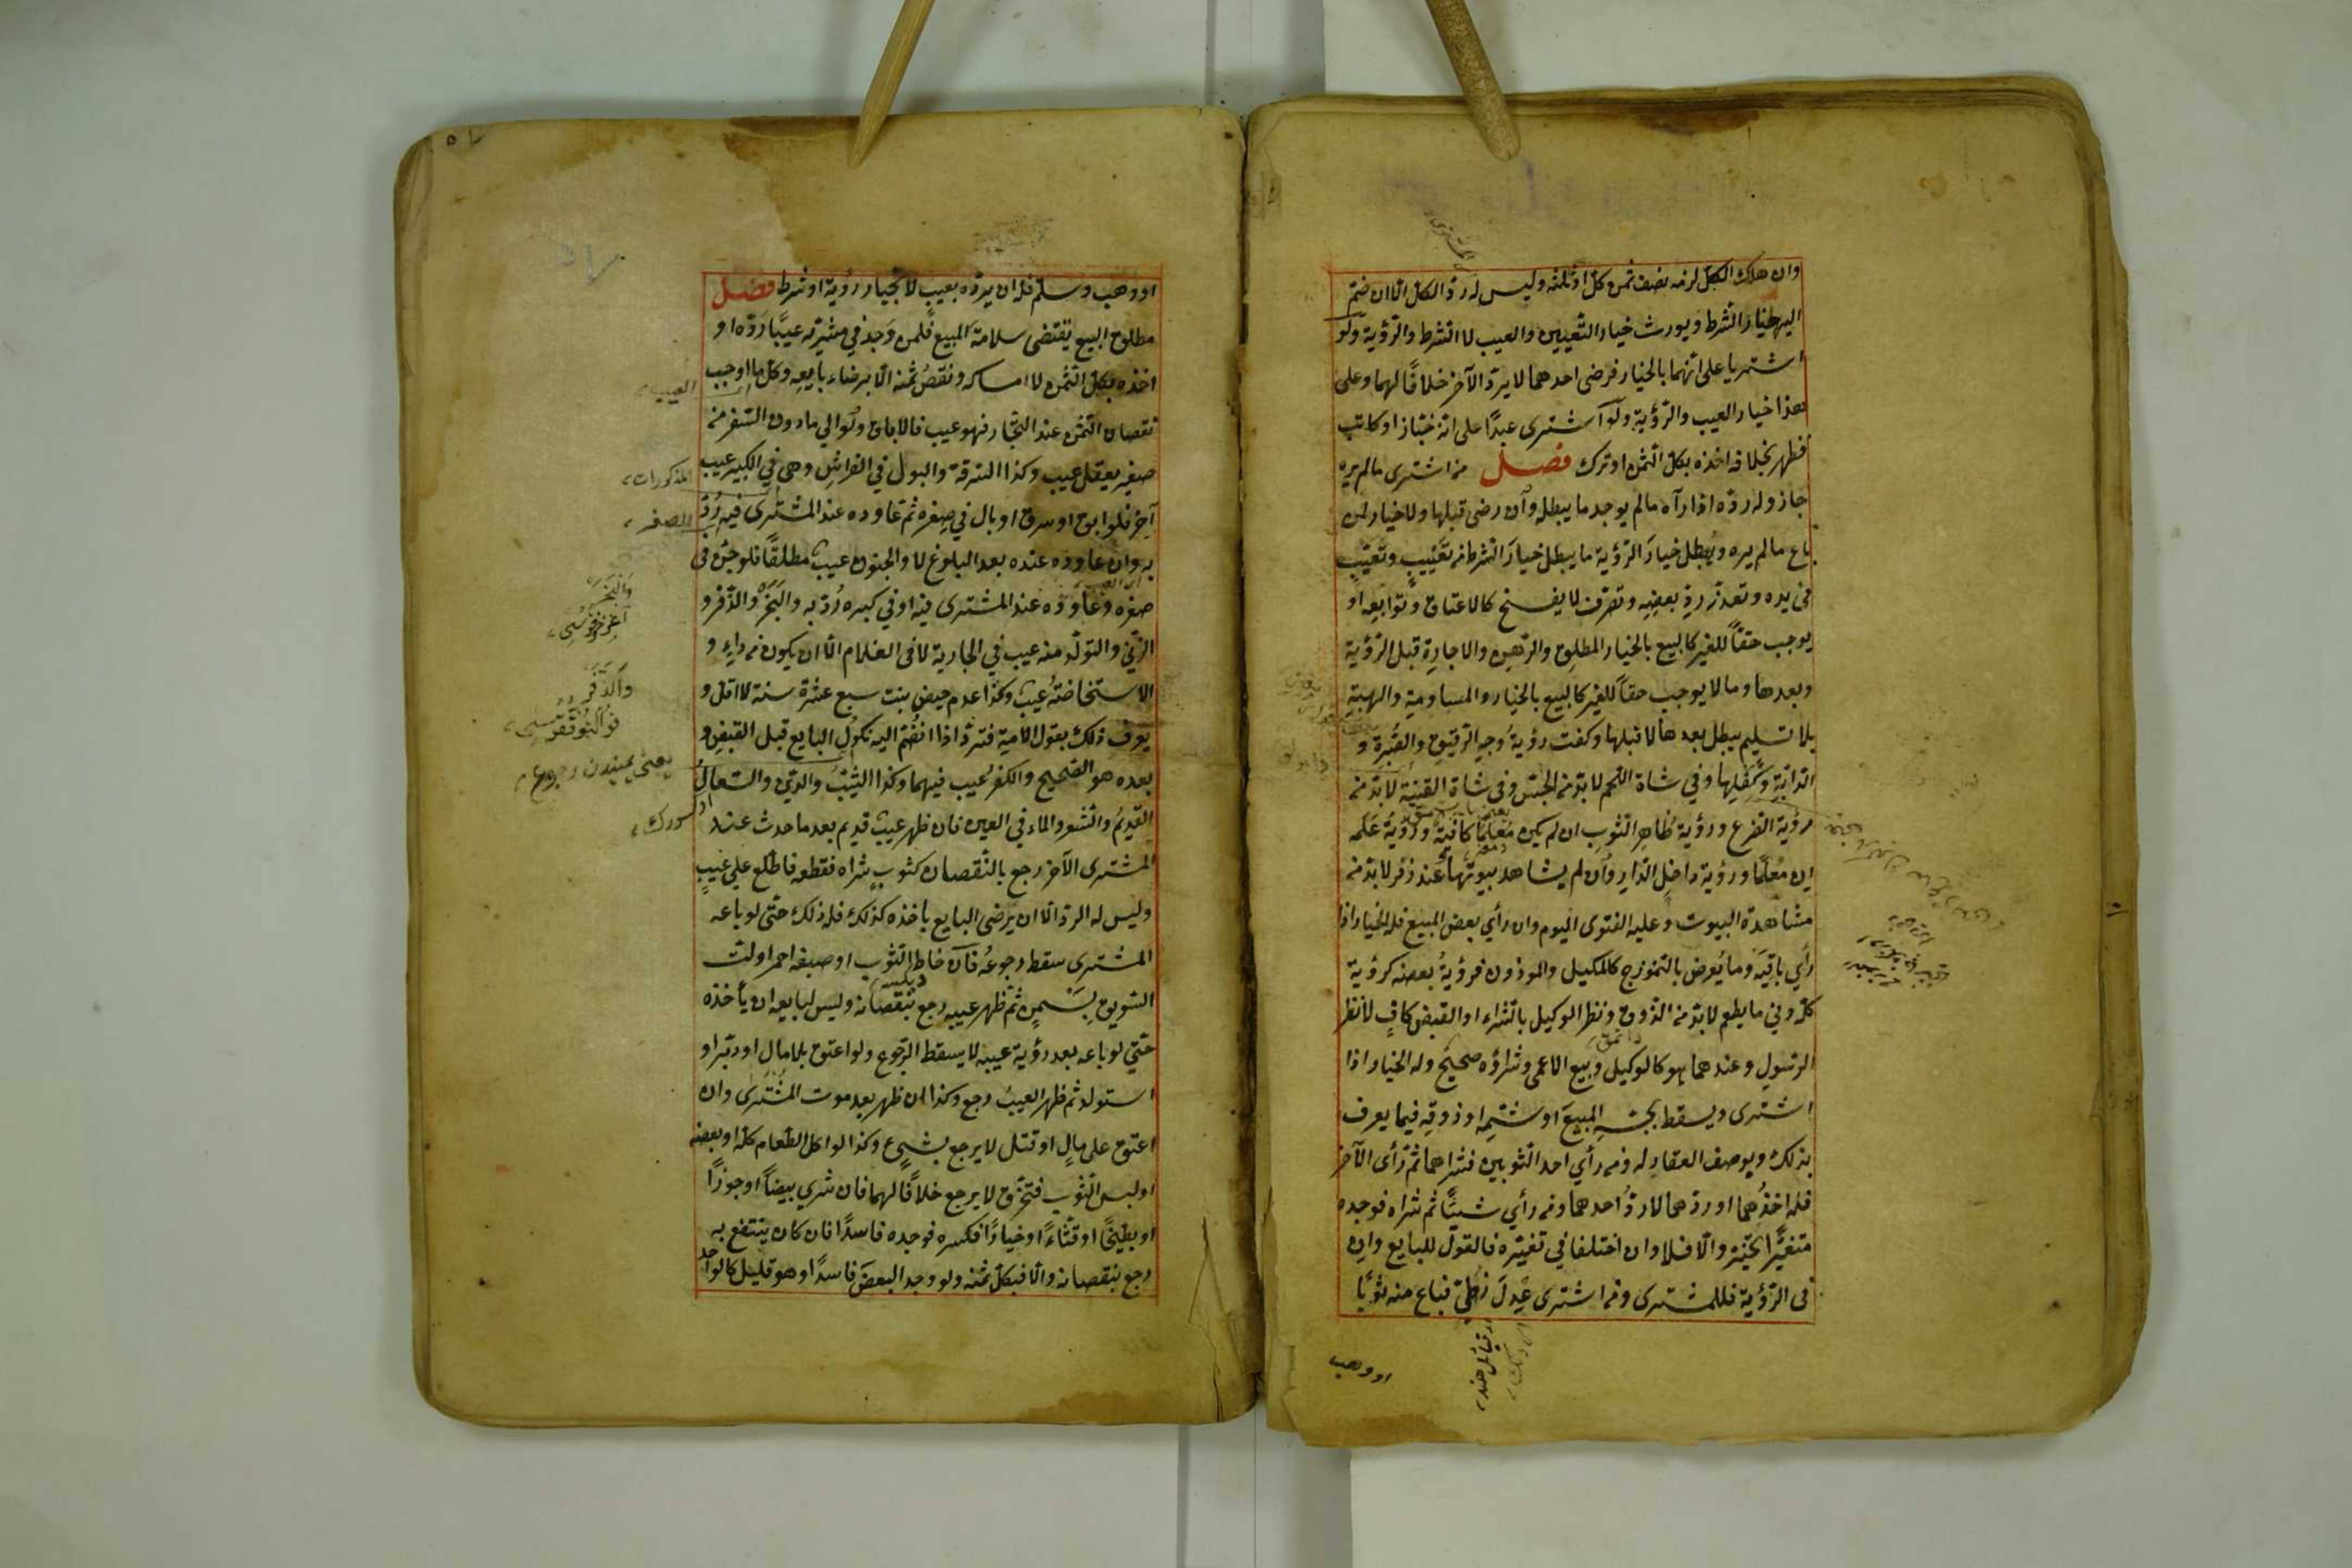 وان هلك الكل لزمه نصف ثمن كل او ثلثه وليس له رد الكل الا ان ضم
اليه خيار الشرط ويورث خيار التعيين والعيب لا الشرط والرؤية ولو
اشتريا على انهما بالخيار فرضى احدهما لا يرد الآخر خلافًا لهما وعلى
هذا خيار العيب والرؤية ولو اشترى عبدًا على انه خباز او كاتب
فظهر بخلافه اخذه بكل الثمن او ترك فصل من اشترى مالم يره
جاز وله رده اذا رآه مالم يوجد ما يبطله وان رضى قبلها ولا خيار لمن
باع مالم يره ويبطل خيار الرؤية ما يبطل خيار الشرط من تعييب وتعيب
فى يده وتعذر رد بعضه وتصرف لا يفسخ كالاعتاق وتوابعه او
يوجب حقاً للغير كالبيع بالخيار المطلق والرهن والاجارة قبل الرؤية
وبعدها وما لا يوجب حقاً للغير كالبيع بالخيار والمساومة والهبة
بلا تسليم يبطل بعدها لا قبلها وكفت رؤية وجه الرقيق والصبرة و
الدابة وكفلها وفي شاة اللحم لا بد من الجس وفى شاة القنية لا بد من
رؤية الضرع ورؤية ظاهر الثوب ان لم يكن معلمًا كافية ورؤية علمه
ان معلمًا ورؤية داخل الدار وان لم يشاهد بيوتها عند زفر لا بد من
مشاهدة البيوت وعليه الفتوى اليوم وان رأي بعض المبيع فله الخيار اذا
رأي باقيه وما يعرض بالنموذج كالمكيل والموزون فرؤية بعضه كرؤية
كله وفي ما يطعم لا بد من الذوق ونظر الوكيل بالشراء او القبض كاف لا نظر
الرسول وعندهما هو كالوكيل وبيع الاعمى وشراؤه صحيح وله الخيار اذا
اشترى ويسقط بجسه المبيع او شمه او ذوقه فيما يعرف
بذلك وبوصف العقار له ومن رأي احد الثوبين فشراهما ثم رأى الآخر
فله اخذهما او ردهما لا رد احدهما ومن رأي شيئًا ثم شراه فوجده
متغيرًا خير والا فلا وان اختلفا في تغيره فالقول للبايع وان
فى الرؤية فللمشترى ومن اشترى عدل زطى فباع منه ثوبًا
او وهب
او وهب وسلم فله ان يرده بعيب لا بخيار رؤية او شرط فصل
مطلق البيع يقتضى سلامة المبيع فلمن وجد في مشريه عيبًا رده او
اخذه بكل الثمن لا امساكه ونقص ثمنه الا برضاء بايعه وكل ما اوجب
نقصان الثمن عند التجار فهو عيب فالاباق ولو الي ما دون السفر من
صغير يعقل عيب وكذا السرقة والبول في الفراش وهى في الكبير عيب
آخر فلو ابق او سرق او بال في صغره ثم عاوده عند المشترى فيه رد
به وان عاوده عنده بعد البلوغ لا والجنون عيب مطلقًا فلو جن فى
صغره وعاوده عند المشترى فيه او في كبره رد به والبخر والذفر و
الزنى والتولد منه عيب في الجارية لا فى الغلام الا ان يكون من داء و
الاستحاضة عيب وكذا عدم حيض بنت سبع عشرة سنة لا اقل و
يعرف ذلك بقول الامة فترد اذا انضم اليه نكول البايع قبل القبض و
بعده هو الصحيح والكفر عيب فيهما وكذا الشيب والدين والسعال
القديم والشعر والماء في العين فان ظهر عيب قديم بعد ما حدث عند
المشترى الآخر رجع بالنقصان كثوب شراه فقطعه فاطلع على عيب
وليس له الرد الا ان يرضى البايع باخذه كذلك فله ذلك حتى لو باعه
المشترى سقط رجوعه فان خاط الثوب او صبغه احمر او لت
السويق بسمن ثم ظهر عيبه رجع بنقصانه وليس لبايعه ان يأخذه
حتى لو باعه بعد رؤية عيبه لا يسقط الرجوع ولو اعتق بلا مال او دبر او
استولد ثم ظهر العيب رجع وكذا ان ظهر بعد موت المشترى وان
اعتق على مال او قتل لا يرجع بشيء وكذا لو اكل الطعام كله او بعضه
او لبس الثوب فتخرق لا يرجع خلافًا لهما فان شرى بيضاً او جوزًا
او بطيخًا او قثاءً او خيارًا فكسره فوجده فاسدًا فان كان ينتفع به
رجع بنقصانه والا فبكل ثمنه ولو وجد البعض فاسدًا وهو قليل كالواحد
العيب
المذكورات
الصغر
والبخر
والذفر
يعنى يميندن رجوع